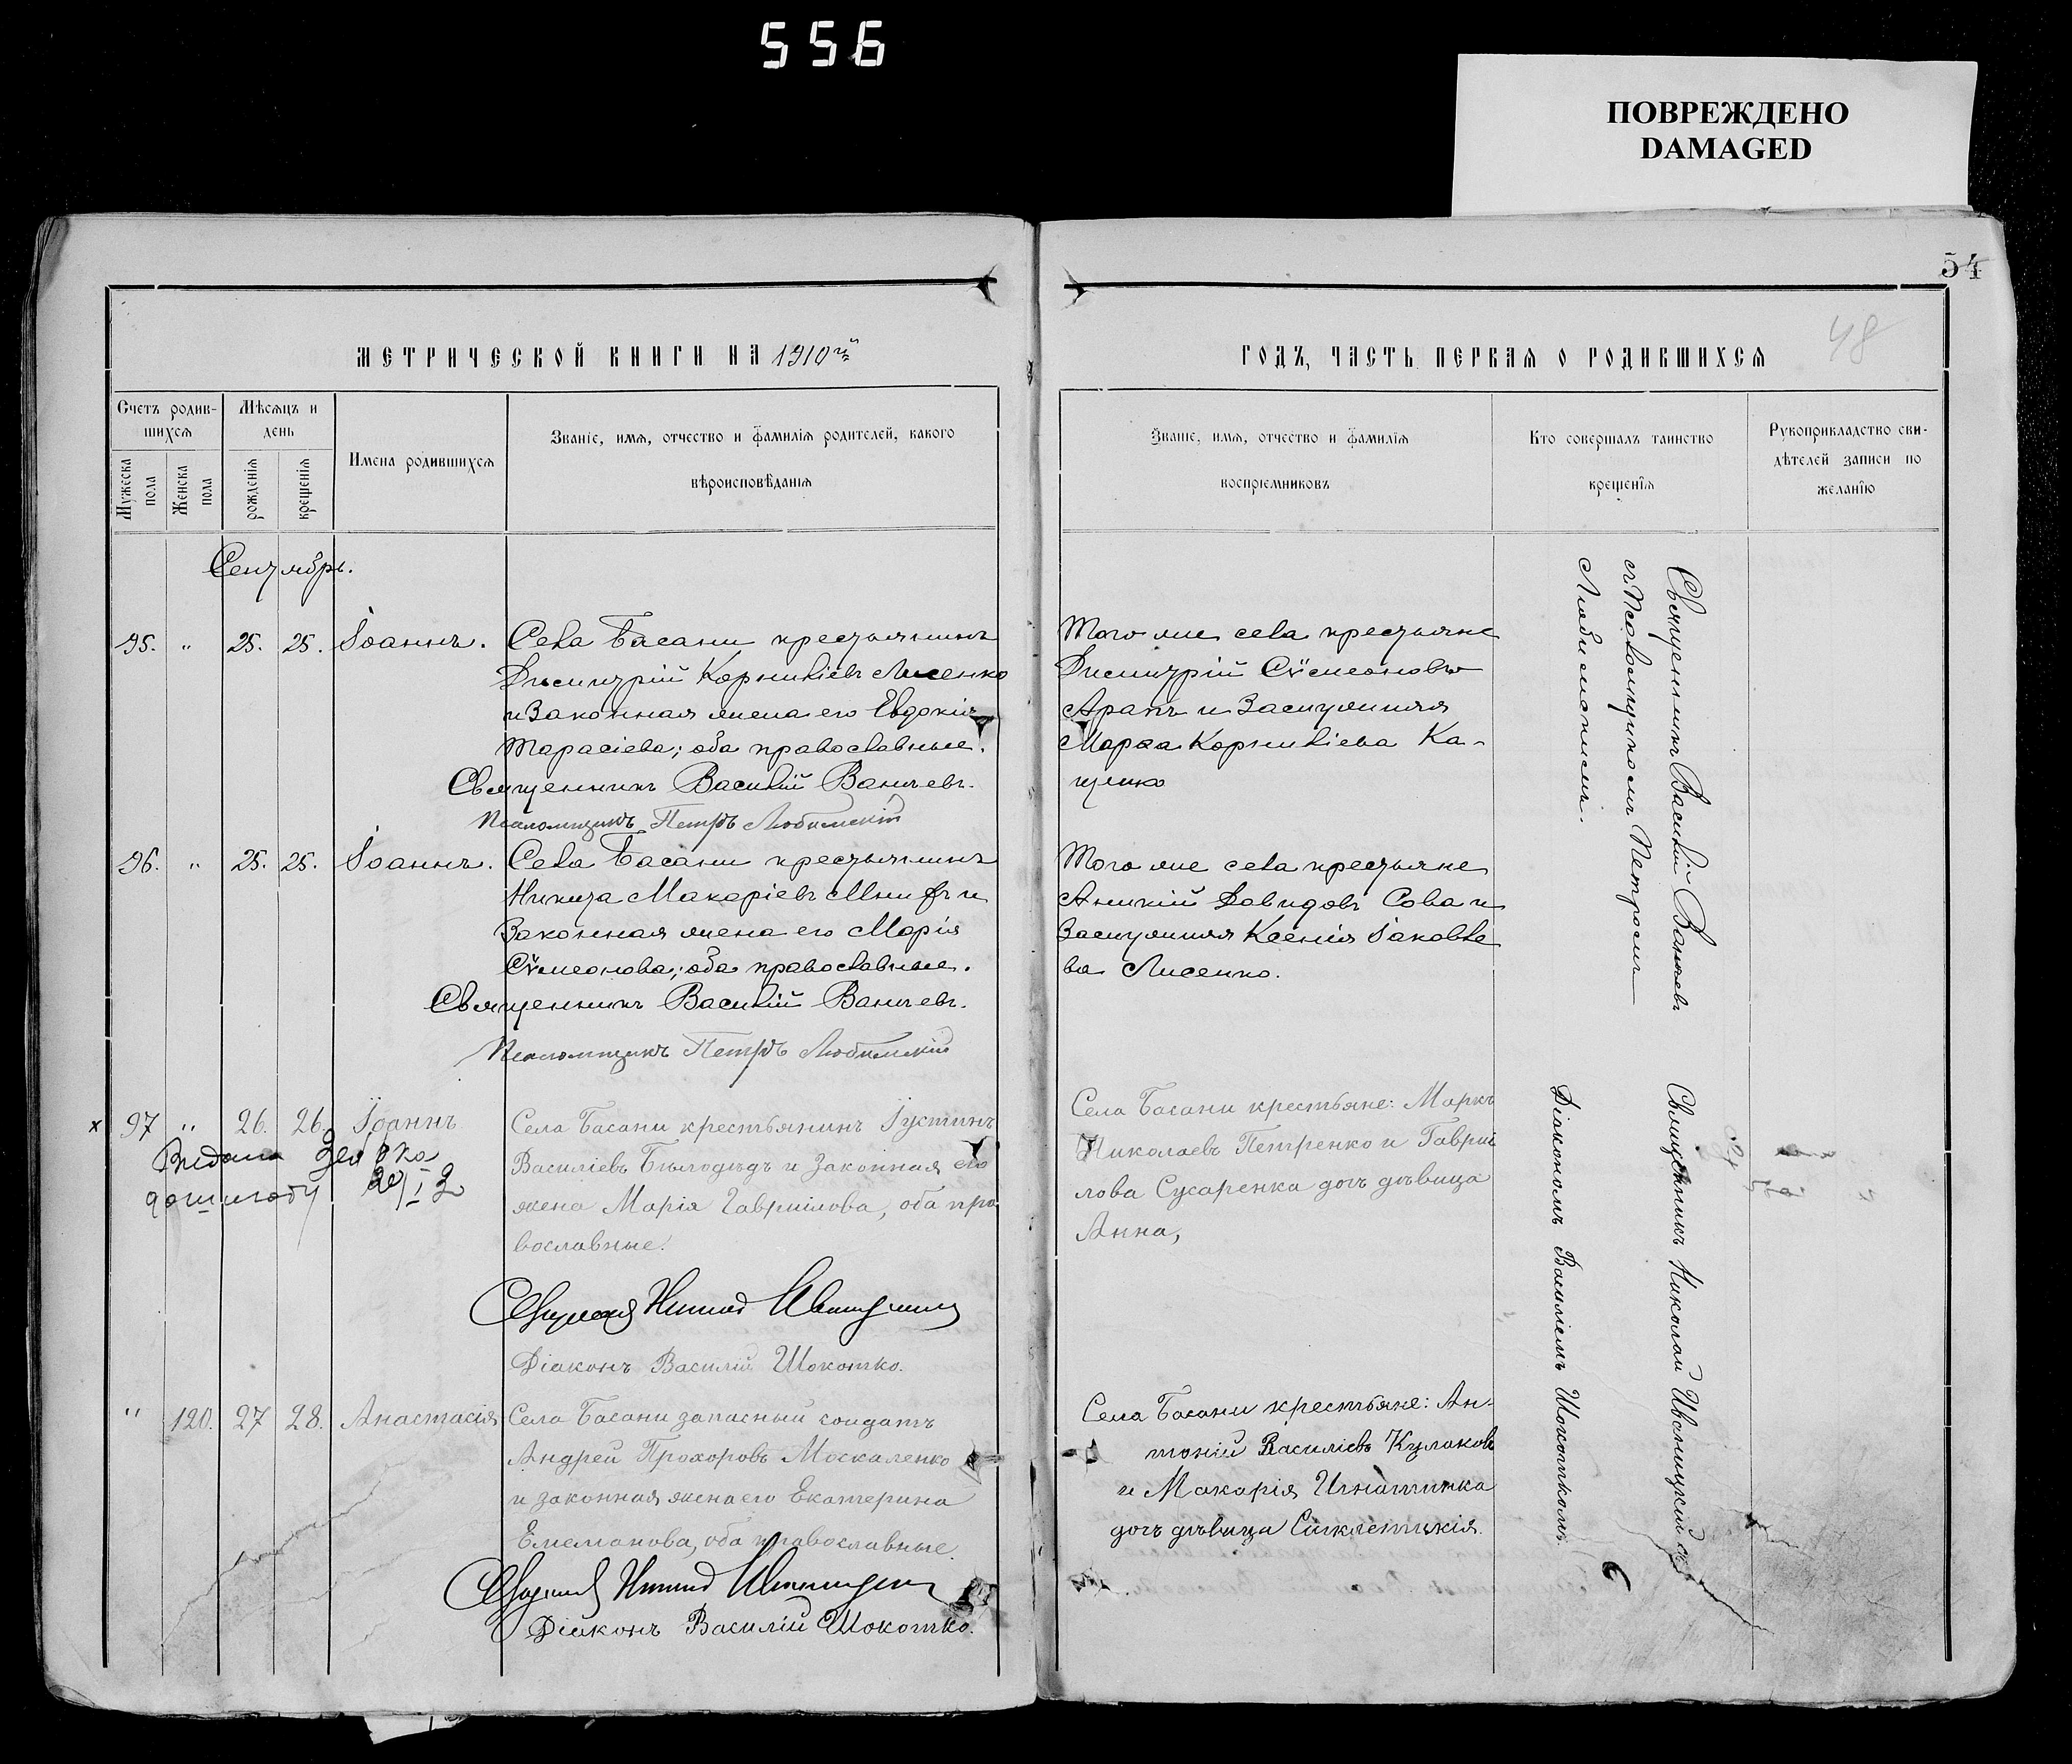 556
ПОВРЕЖДЕНО
DAMAGED
54
48
МЕТРИЧЕСКОЙ КНИГИ НА 1910й
ГОДЪ, ЧАСТЬ ПЕРВАЯ О РОДИВШИХСЯ
Счетъ родив-
шихся
Мужеска пола
Женска пола
Мѣсяцъ и
день
рожденія
крещенія
Имена родившихся
Званіе, имя, отчество и фамилія родителей, какого
вѣроисповѣданія
Званіе, имя, отчество и фамилія
воспріемниковъ
Кто совершалъ таинство
крещенія
Рукоприкладство сви-
дѣтелей записи по
желанію
Сентябрь.
95. " 25. 25. Іоаннъ. Села Басани крестьянинъ
Димитрій Корниліевъ Лисенко
и законная жена его Евдокія
Тарасіева; оба православные.
Священникъ Василій Ваничевъ.
Псаломщикъ Петръ Любимскій
Того же села крестьяне
Димитрій Сѵмеоновъ
Арапъ и Замужняя
Марѳа Корниліева Ка-
щенко
Священникъ Василій Ваничевъ
съ Псаломщикомъ Петромъ
Любимскимъ.
96. " 25. 25. Іоаннъ. Села Басани крестьянинъ
Никита Макаріевъ и
Законная жена его Марія
Сѵмеонова; оба православные.
Священникъ Василій Ваничевъ.
Псаломщикъ Петръ Любимскій
Того же села крестьяне
Аникій Давидовъ Сова и
Замужняя Ксенія Іаковле
ва Лисенко.
х 97 " 26. 26. Іоаннъ Села Басани крестьянинъ Іустинъ
Василіевъ Бѣлодѣдъ и законная его
жена Марія Гавріилова, оба пра
вославные.
Діаконъ Василій Шокотко.
Села Басани крестьяне: Маркъ
Николаевъ Петренко и Гавріи
лова Сухаренка дочь дѣвица
Анна,
Священникъ Николай
Діакономъ Василіемъ Шокоткомъ.
" 120. 27 28. Анастасія Села Басани запасный солдатъ
Андрей Прохоровъ Москаленко
и законная жена его Екатерина
оба православные.
Діаконъ Василій Шокотко.
Села Басани крестьяне: Ан-
тоній Василіевъ Кулаковъ
и Макарія Игнатинка
дочь дѣвица Синклетикія.